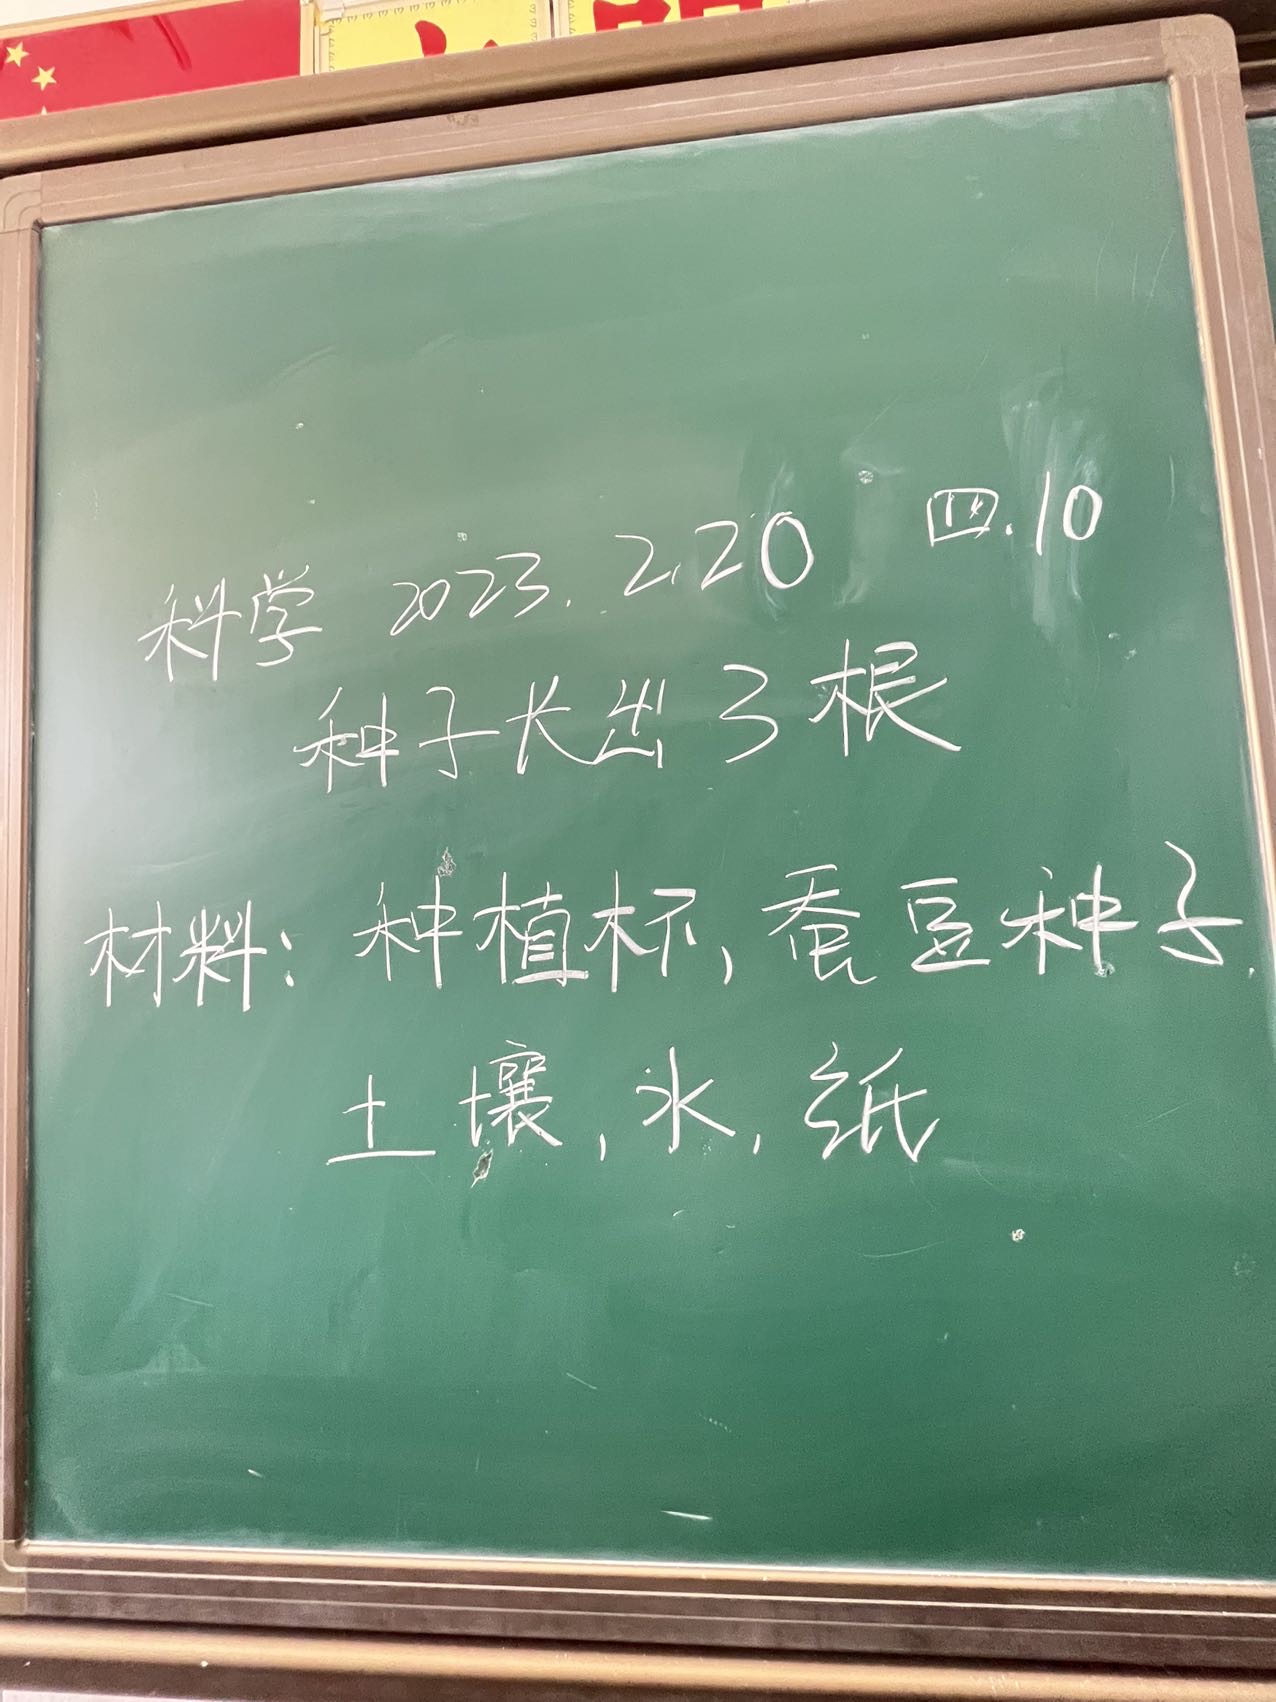 科学 2023.2.20 四.10
种子长出了根
材料：种植杯，蚕豆种子，
土壤，水，纸